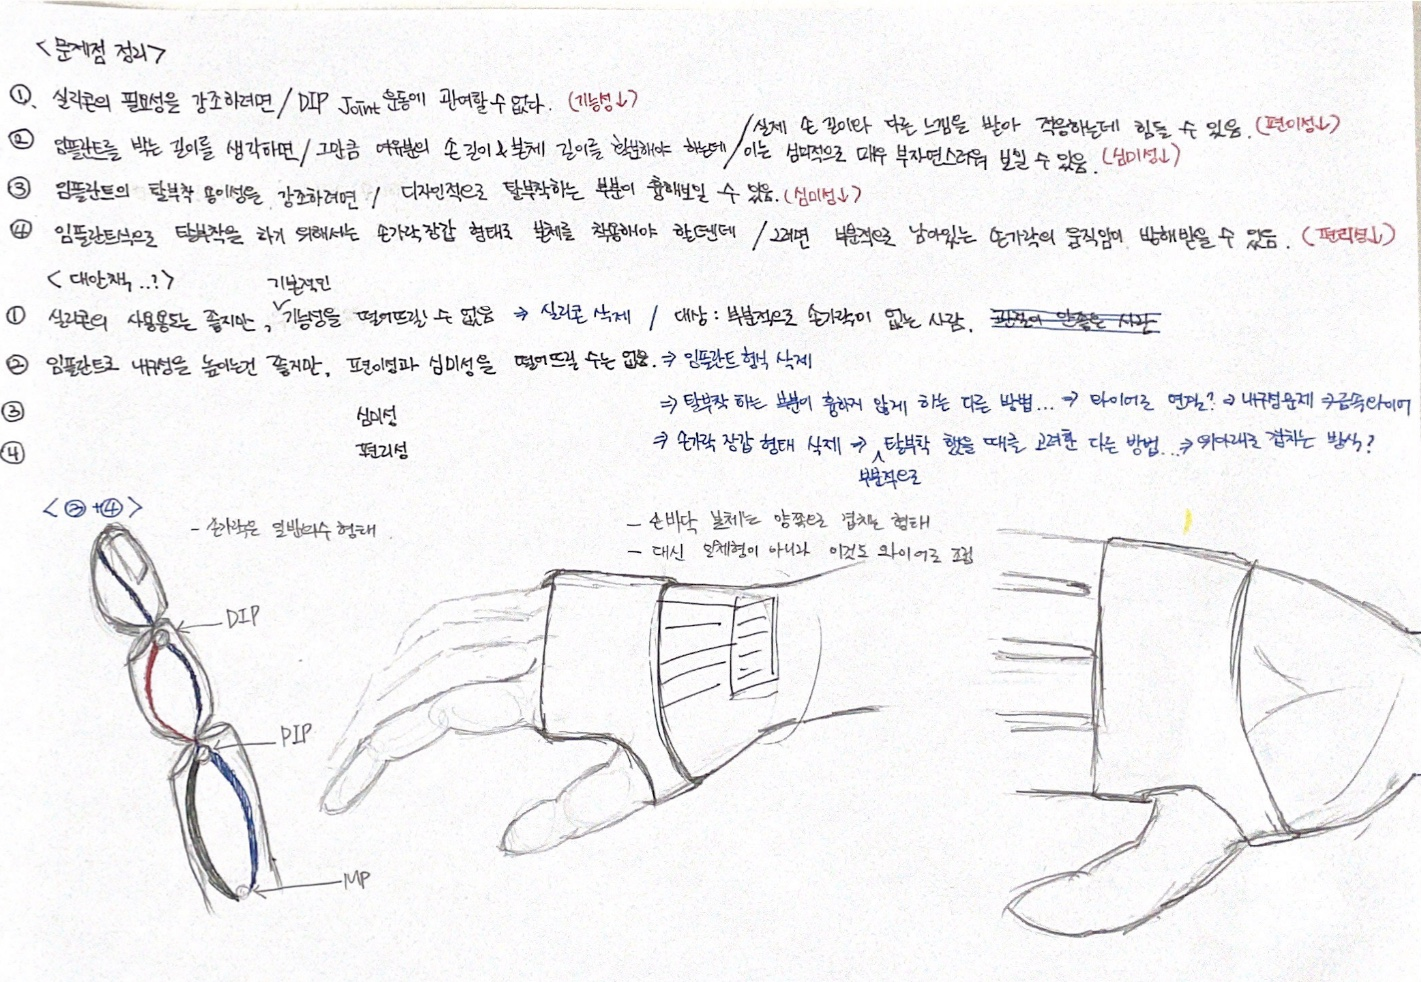 <문제점 정리>
①. 실리콘의 필요성을 강조하려면 / DIP Joint 운동에 관여할 수 없다. (기능성↓)
② 임플란트를 박는 길이를 생각하면 / 그만큼 여유분의 손 길이 & 본체 길이를 확보해야 하는데 / 실제 손 길이와 다른 느낌을 받아 적응하는데 힘들 수 있음. (편의성↓)
이는 심미적으로 매우 부자연스러워 보일 수 있음. (심미성↓)
③ 임플란트의 탈부착 용이성을 강조하려면 / 디자인적으로 탈부착하는 부분이 흉해보일 수 있음. (심미성↓)
④ 임플란트식으로 탈부착을 하기 위해서는 손가락장갑 형태로 본체를 착용해야 할텐데 / 그러면 부분적으로 남아있는 손가락의 움직임이 방해받을 수 있음. (편리성↓)
<대안책..?>
기본적인
① 실리콘의 사용용도는 좋지만, 기능성을 떨어뜨릴 수 없음 ⇒ 실리콘 삭제 / 대상 : 부분적으로 손가락이 없는 사람.
② 임플란트로 내구성을 높이는건 좋지만, 편이성과 심미성을 떨어뜨릴 수는 없음. ⇒ 임플란트 형식 삭제
③ 심미성 ⇒ 탈부착 하는 부분이 흉하지 않게 하는 다른 방법... → 와이어로 연결? → 내구성문제 → 금속와이어
④ 편리성 ⇒ 손가락 장갑 형태 삭제 → 탈부착 했을 때를 고려한 다른 방법... → 위아래로 겹치는 방식?
부분적으로
<③+④>
- 손가락은 일반의수 형태
- 손바닥 본체는 양쪽으로 겹치는 형태
- 대신 일체형이 아니라 이것도 와이어로 조임
DIP
PIP
MP